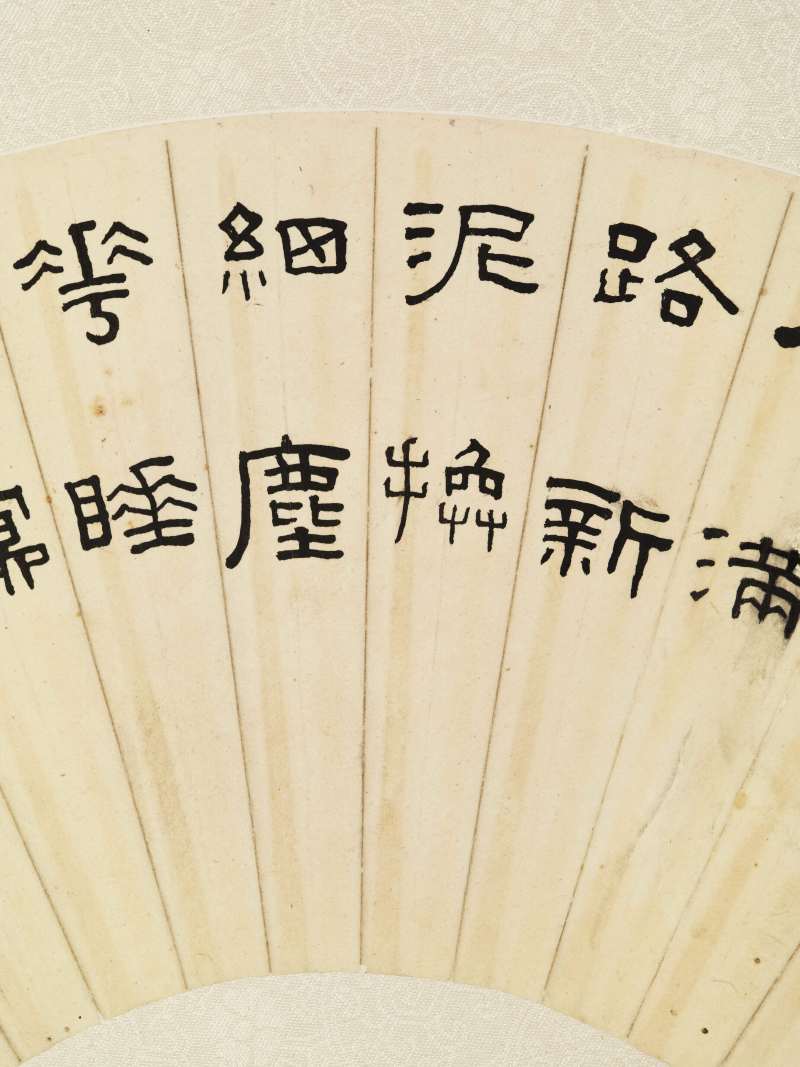 滿
路新
泥換
細塵
華睡